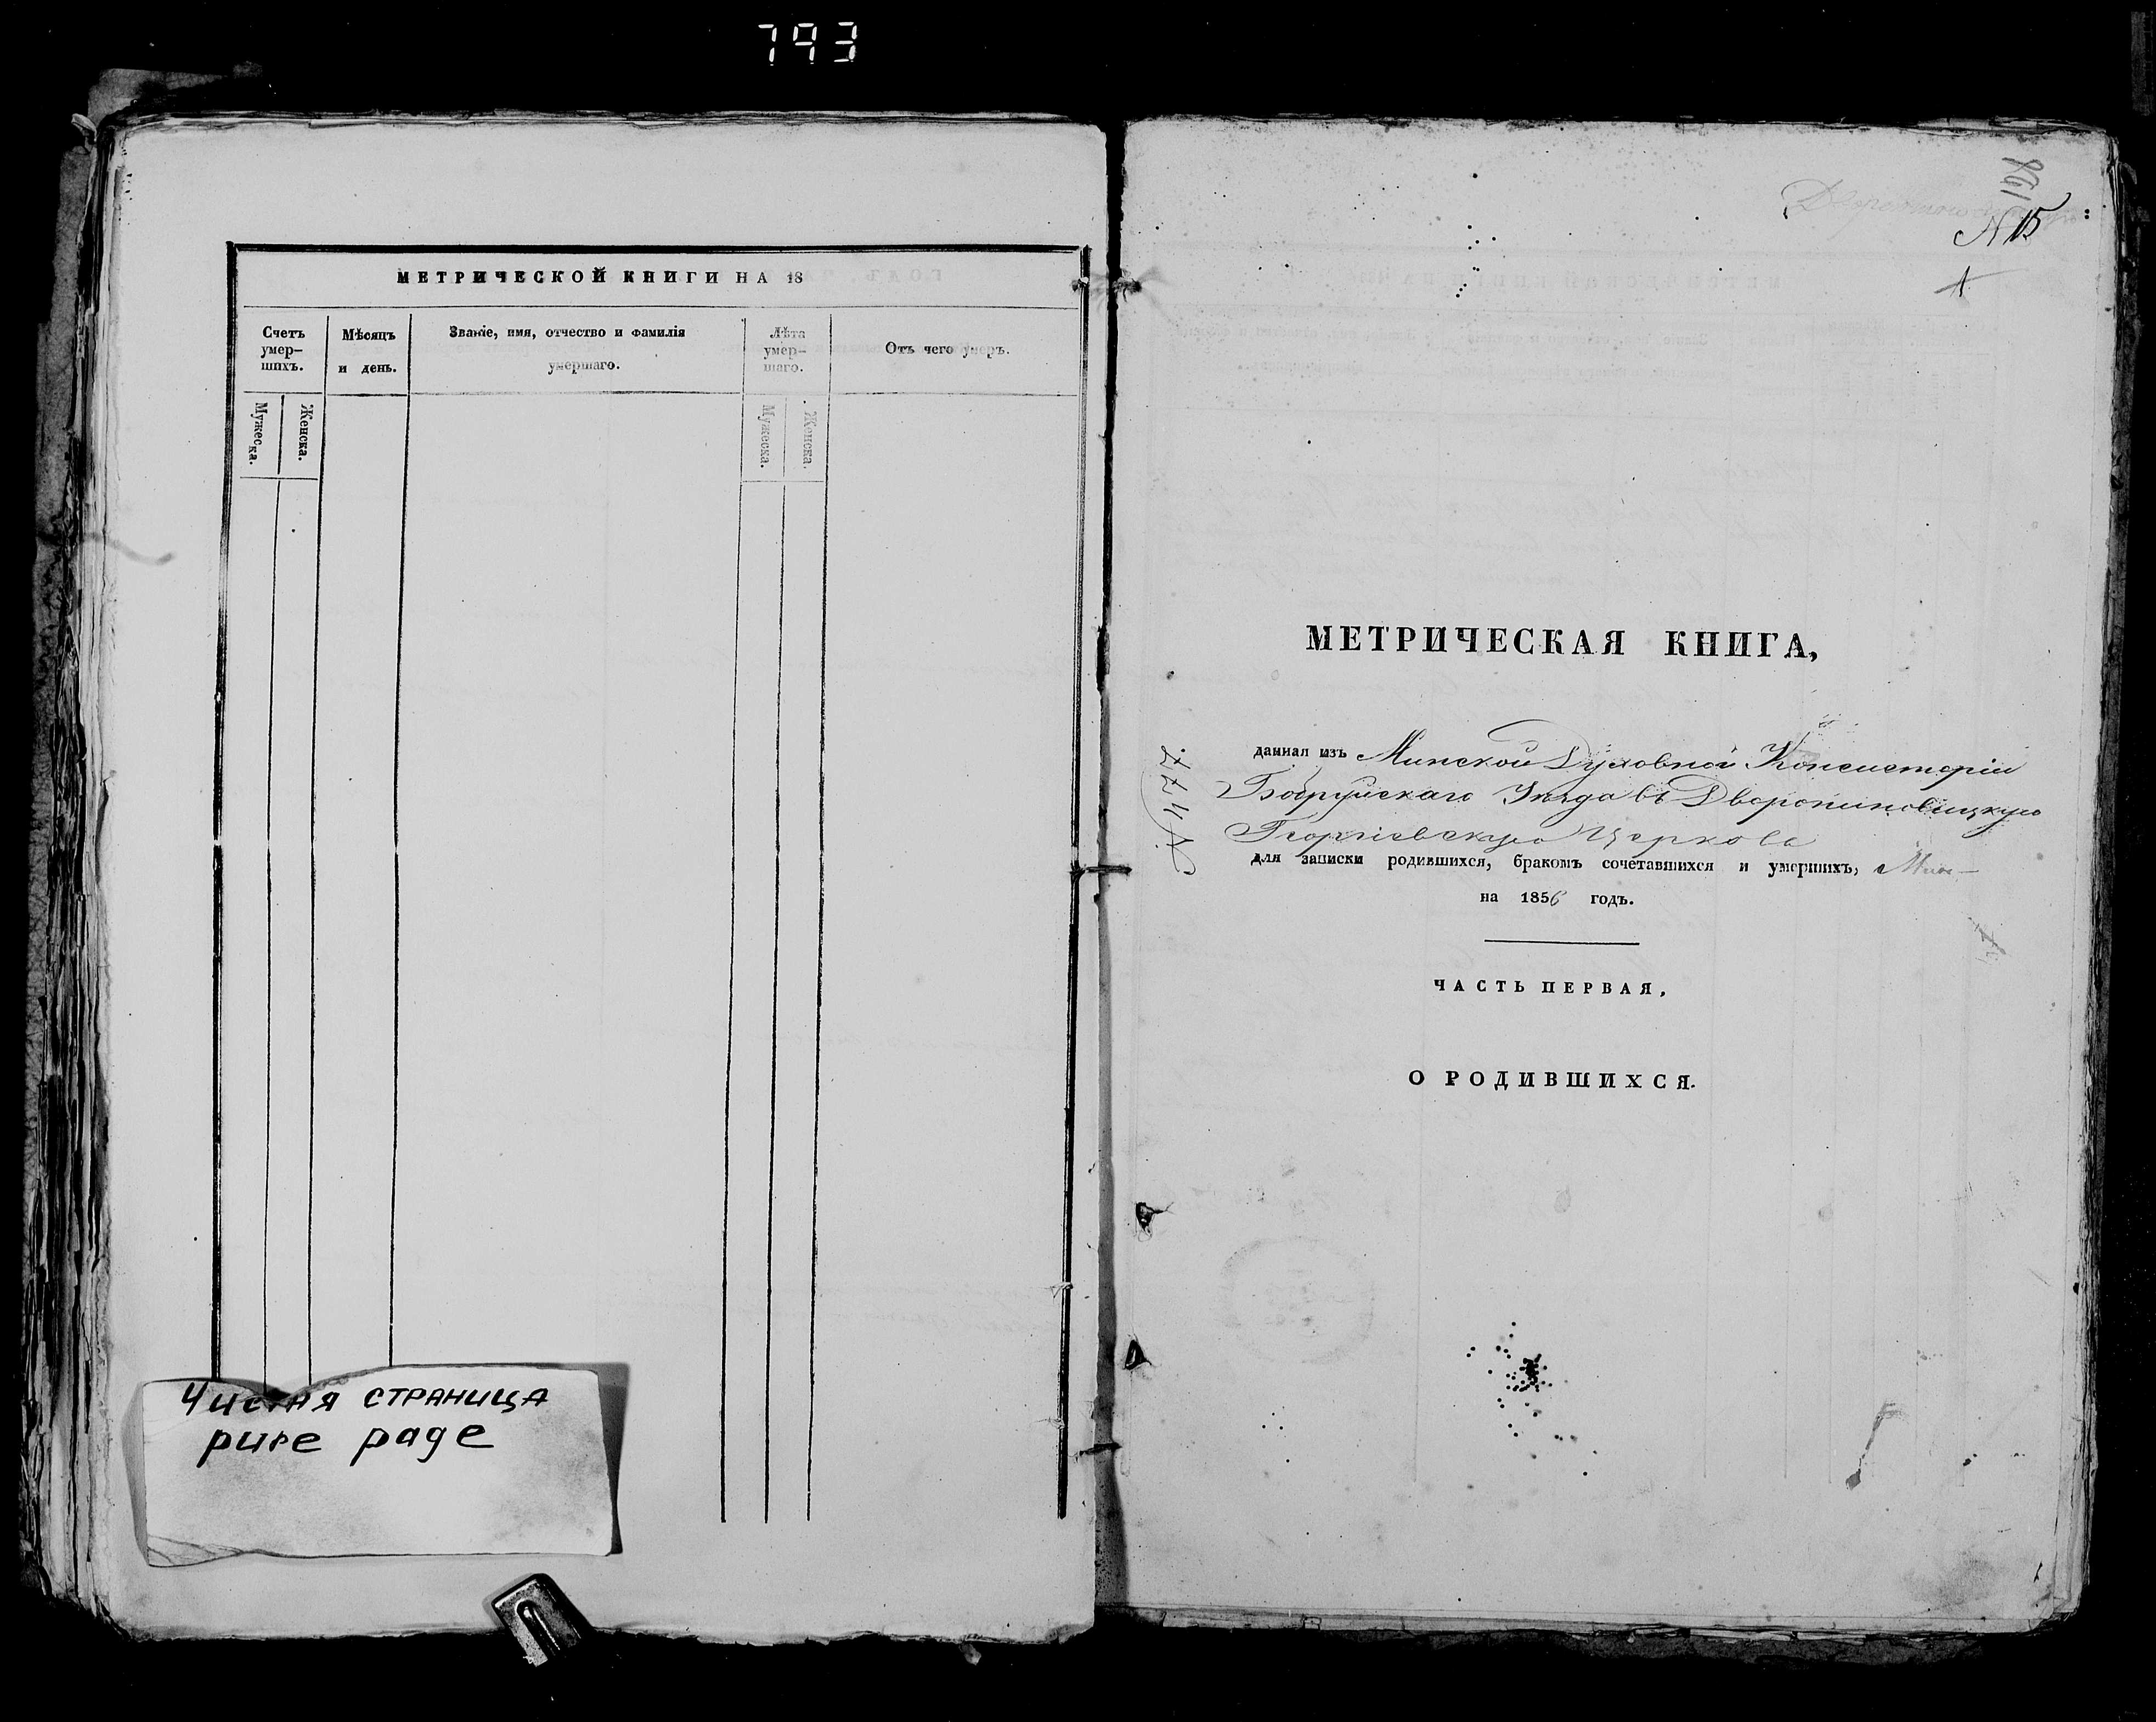 793
МЕТРИЧЕСКОЙ КНИГИ НА 18
Счетъ умер-
шихъ.
Мѣсяцъ
и день.
Званіе, имя, отчество и фамилія
умершаго.
Лѣта
умер-
шаго.
Отъ чего умеръ.
Мужеска.
Женска.
Мужеска.
Женска.
Чистая страница
pure page
N 15
1
МЕТРИЧЕСКАЯ КНИГА,
данная изъ Минской Духовной Консисторіи
Бобруйскаго Уѣзда въ Дворониновицкую
Георгіевскую Церковь
для записки родившихся, бракомъ сочетавшихся и умершихъ,
на 1856 годъ.
ЧАСТЬ ПЕРВАЯ,
О РОДИВШИХСЯ.